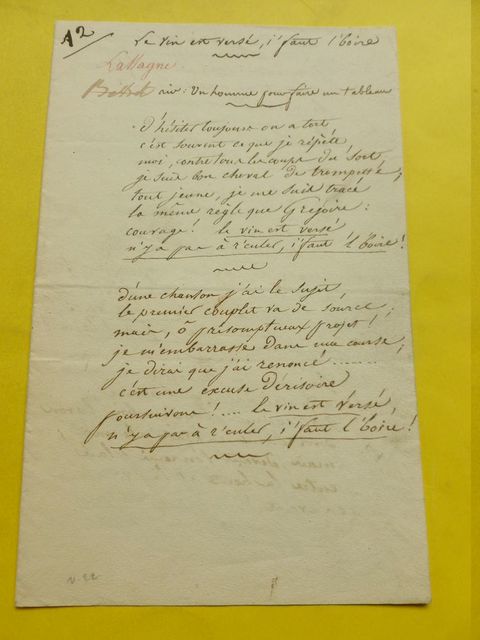 A2
Le vin est versé, i'faut l'boire
LaMagne
air : Un homme pour faire un tableau
d'hésiter toujours on a tort
c'est souvent ce que je répète
moi, contre tous les coups du sort
je suis bon cheval de trompette;
tout jeune, je me suis tracé
la même règle que Grégoire :
courage! le vin est versé
n'y a pas à r'culer, i'faut l'boire!
d'une chanson j'ai le sujet
le premier couplet va de source;
mais, ô présomptueux projet!
je m'embarrasse dans ma course;
je dirai que j'ai renoncé .........
c'est une excuse dérisoire
poursuivons!.... le vin est versé,
n'y a pas à r'culer, i'faut l'boire!